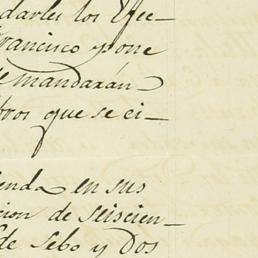 darles los Efec-
Francisco y one
se mandarán
otros que se ci-
enda en sus
cion de seiscien-
de Sebo y Dos